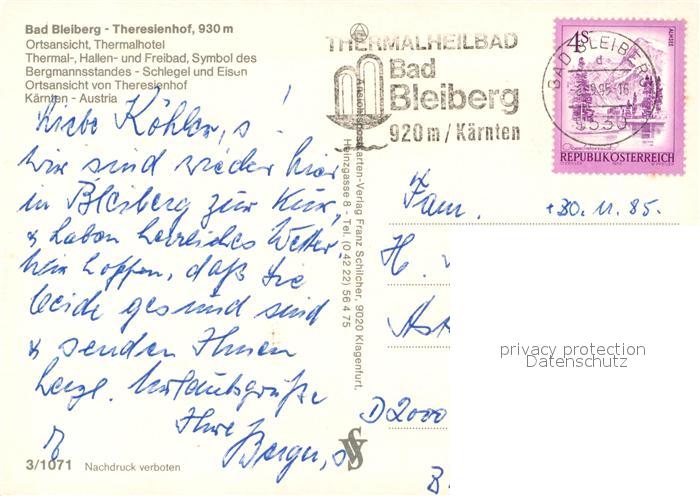 Bad Bleiberg - Theresienhof, 930 m
Ortsansicht, Thermalhotel
Thermal-, Hallen- und Freibad, Symbol des
Bergmannsstandes - Schlegel und Eisen
Ortsansicht von Theresienhof
Kärnten - Austria
THERMALHEILBAD
Bad
Bleiberg
920 m / Kärnten
BAD BLEIBERG
9530
4 S
ALMSEE
Oberösterreich
REPUBLIK ÖSTERREICH
Liebe Köhler, s !
Wir sind wieder hier
in Bleiberg zur Kur,
& haben herrliches Wetter,
Wir hoffen, daß Sie
beide gesund sind
& senden Ihnen
herzl. Urlaubsgrüße
Ihre
Berger, s
Ansichtskarten-Verlag Franz Schilcher, 9020 Klagenfurt,
Heinzgasse 8 - Tel. (0 42 22) 56 4 75
Fam. +30. 11. 85.
H.
Ast
D 2000
B.
privacy protection
Datenschutz
3/1071 Nachdruck verboten